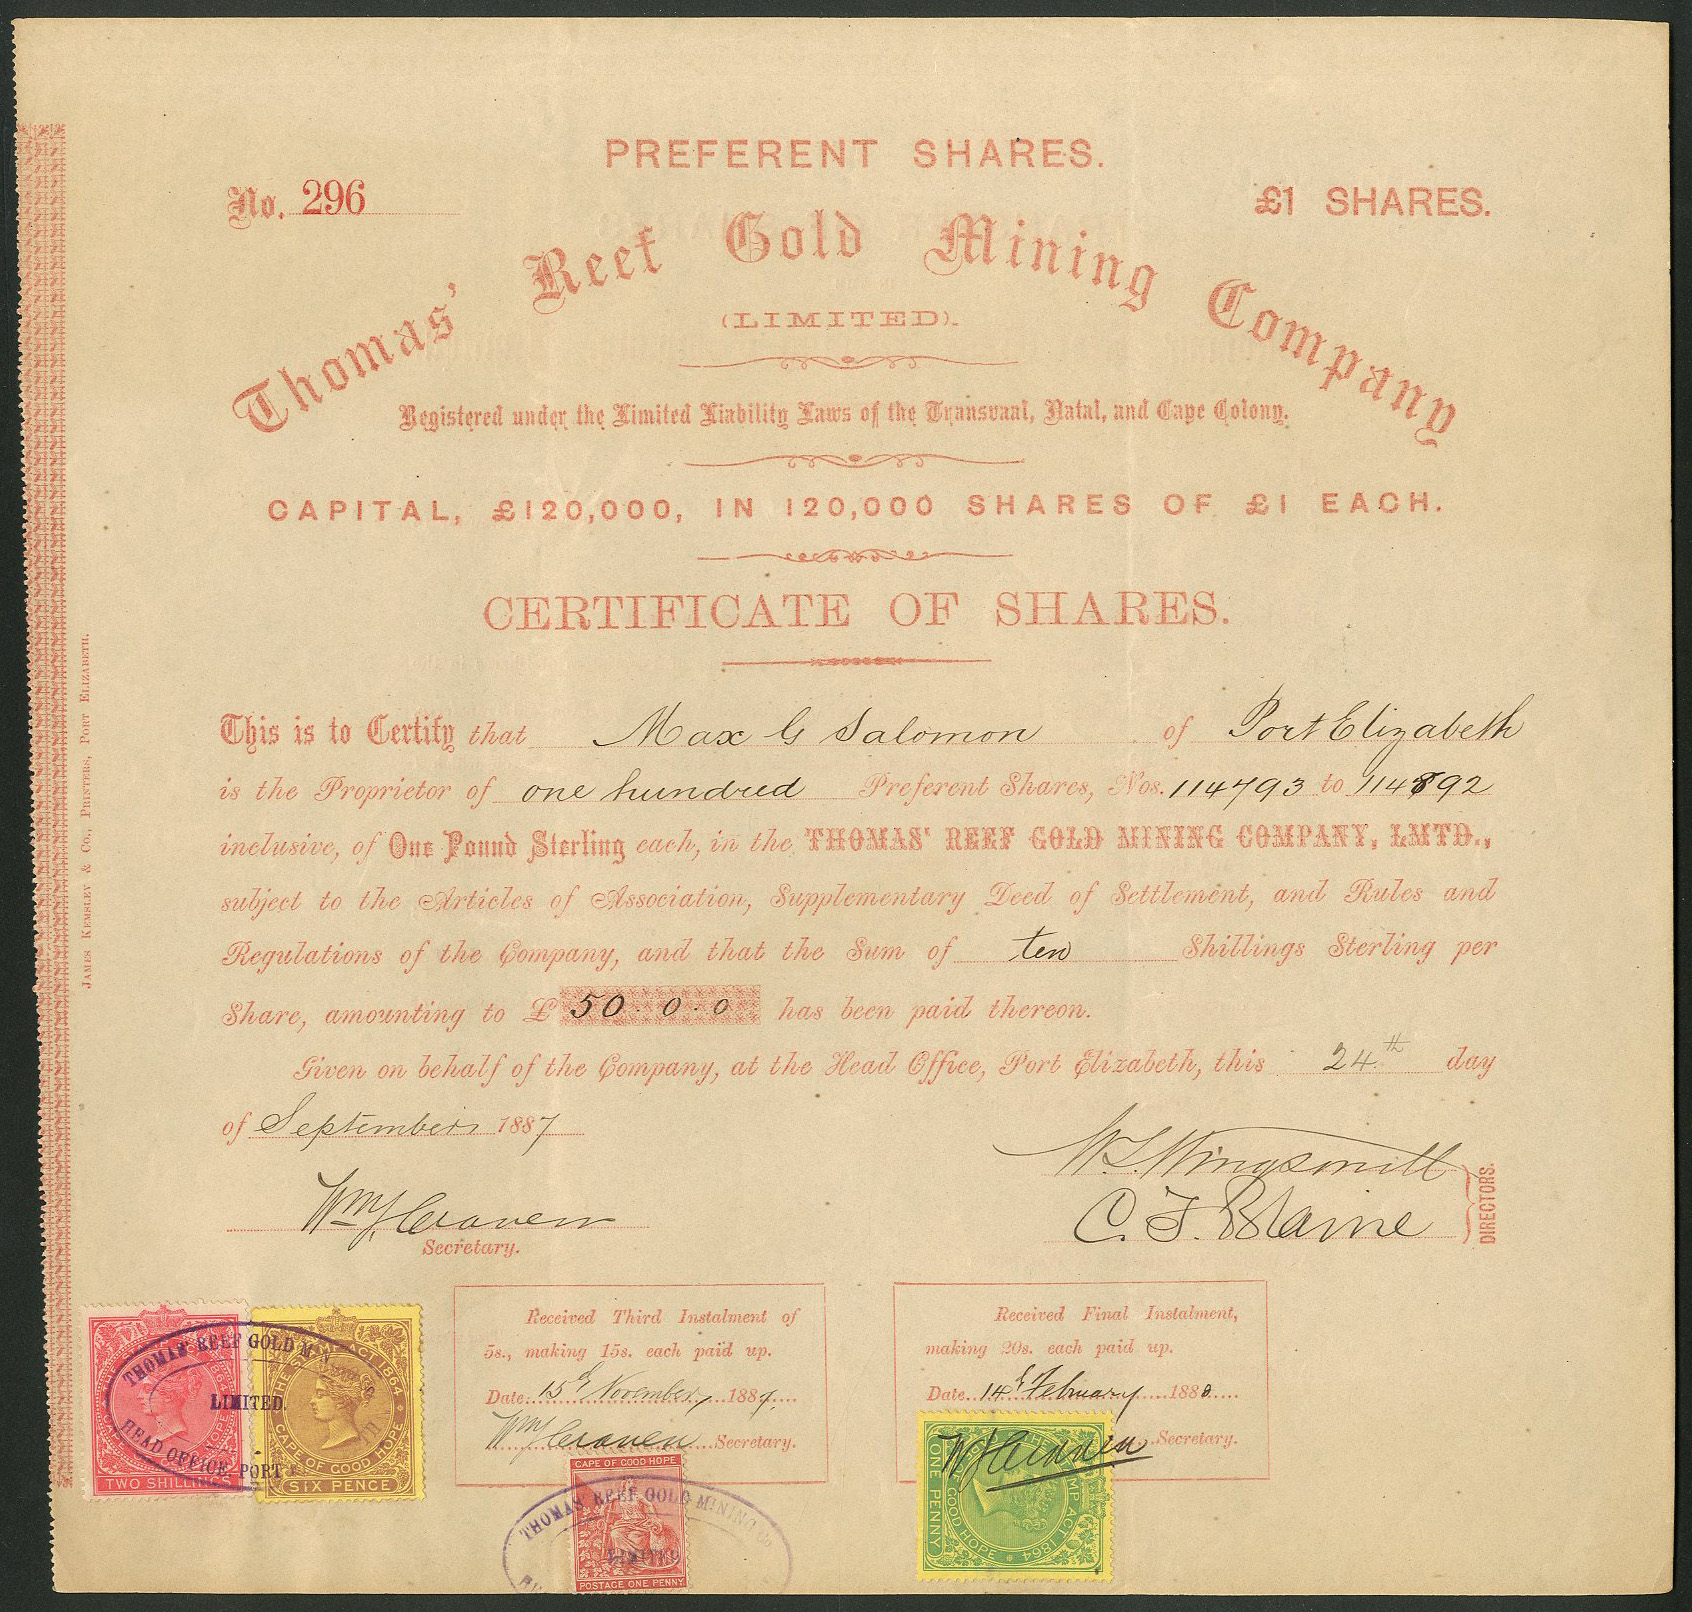 PREFERENT SHARES.
No. 296
£1 SHARES.
Thomas' Reef Gold Mining Company
(LIMITED).
Registered under the Limited Liability Laws of the Transvaal, Natal, and Cape Colony.
CAPITAL, £120,000, IN 120,000 SHARES OF £1 EACH.
CERTIFICATE OF SHARES.
This is to Certify that Max G Salomon of Port Elizabeth
is the Proprietor of one hundred Preferent Shares, Nos. 114793 to 114892
inclusive, of One Pound Sterling each, in the THOMAS' REEF GOLD MINING COMPANY, LMTD.,
subject to the Articles of Association, Supplementary Deed of Settlement, and Rules and
Regulations of the Company, and that the Sum of ten Shillings Sterling per
Share, amounting to £ 50.0.0 has been paid thereon.
Given on behalf of the Company, at the Head Office, Port Elizabeth, this 24th day
of September 1887
W. L. Wingsmill
C. F. Blaine
DIRECTORS.
Wm J. Craven
Secretary.
Received Third Instalment of
5s., making 15s. each paid up.
Date 15th November 1887
Wm J Craven Secretary.
Received Final Instalment,
making 20s. each paid up.
Date 14th February 1888
W J Craven Secretary.
JAMES KEMSLEY & CO., PRINTERS, PORT ELIZABETH.
THOMAS' REEF GOLD
LIMITED.
HEAD OFFICE PORT
TWO SHILLINGS
ACT 1864
CAPE OF GOOD HOPE
SIX PENCE
CAPE OF GOOD HOPE
THOMAS' REEF GOLD MINING Co
LIMITED
POSTAGE ONE PENNY
ONE PENNY
GOOD HOPE
ACT 1864